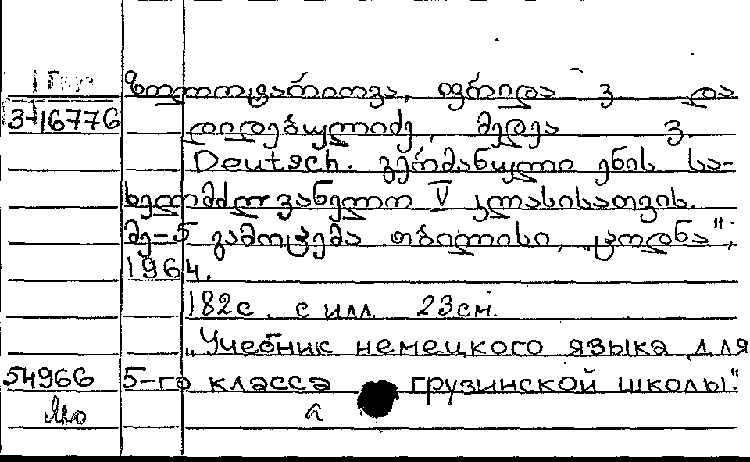 1 Гпр
3-16776 ზოლოტარიოვა, ფრიდა ვ. და
დიდებულიძე, მედეა ვ.
Deutsch. გერმანული ენის სა-
ხელმძღვანელო V კლასისათვის.
მე-5 გამოცემა თბილისი, „ცოდნა",
1964.
182с. с илл. 23см.
„Учебник немецкого языка для
54966 5-го класса грузинской школы".
а